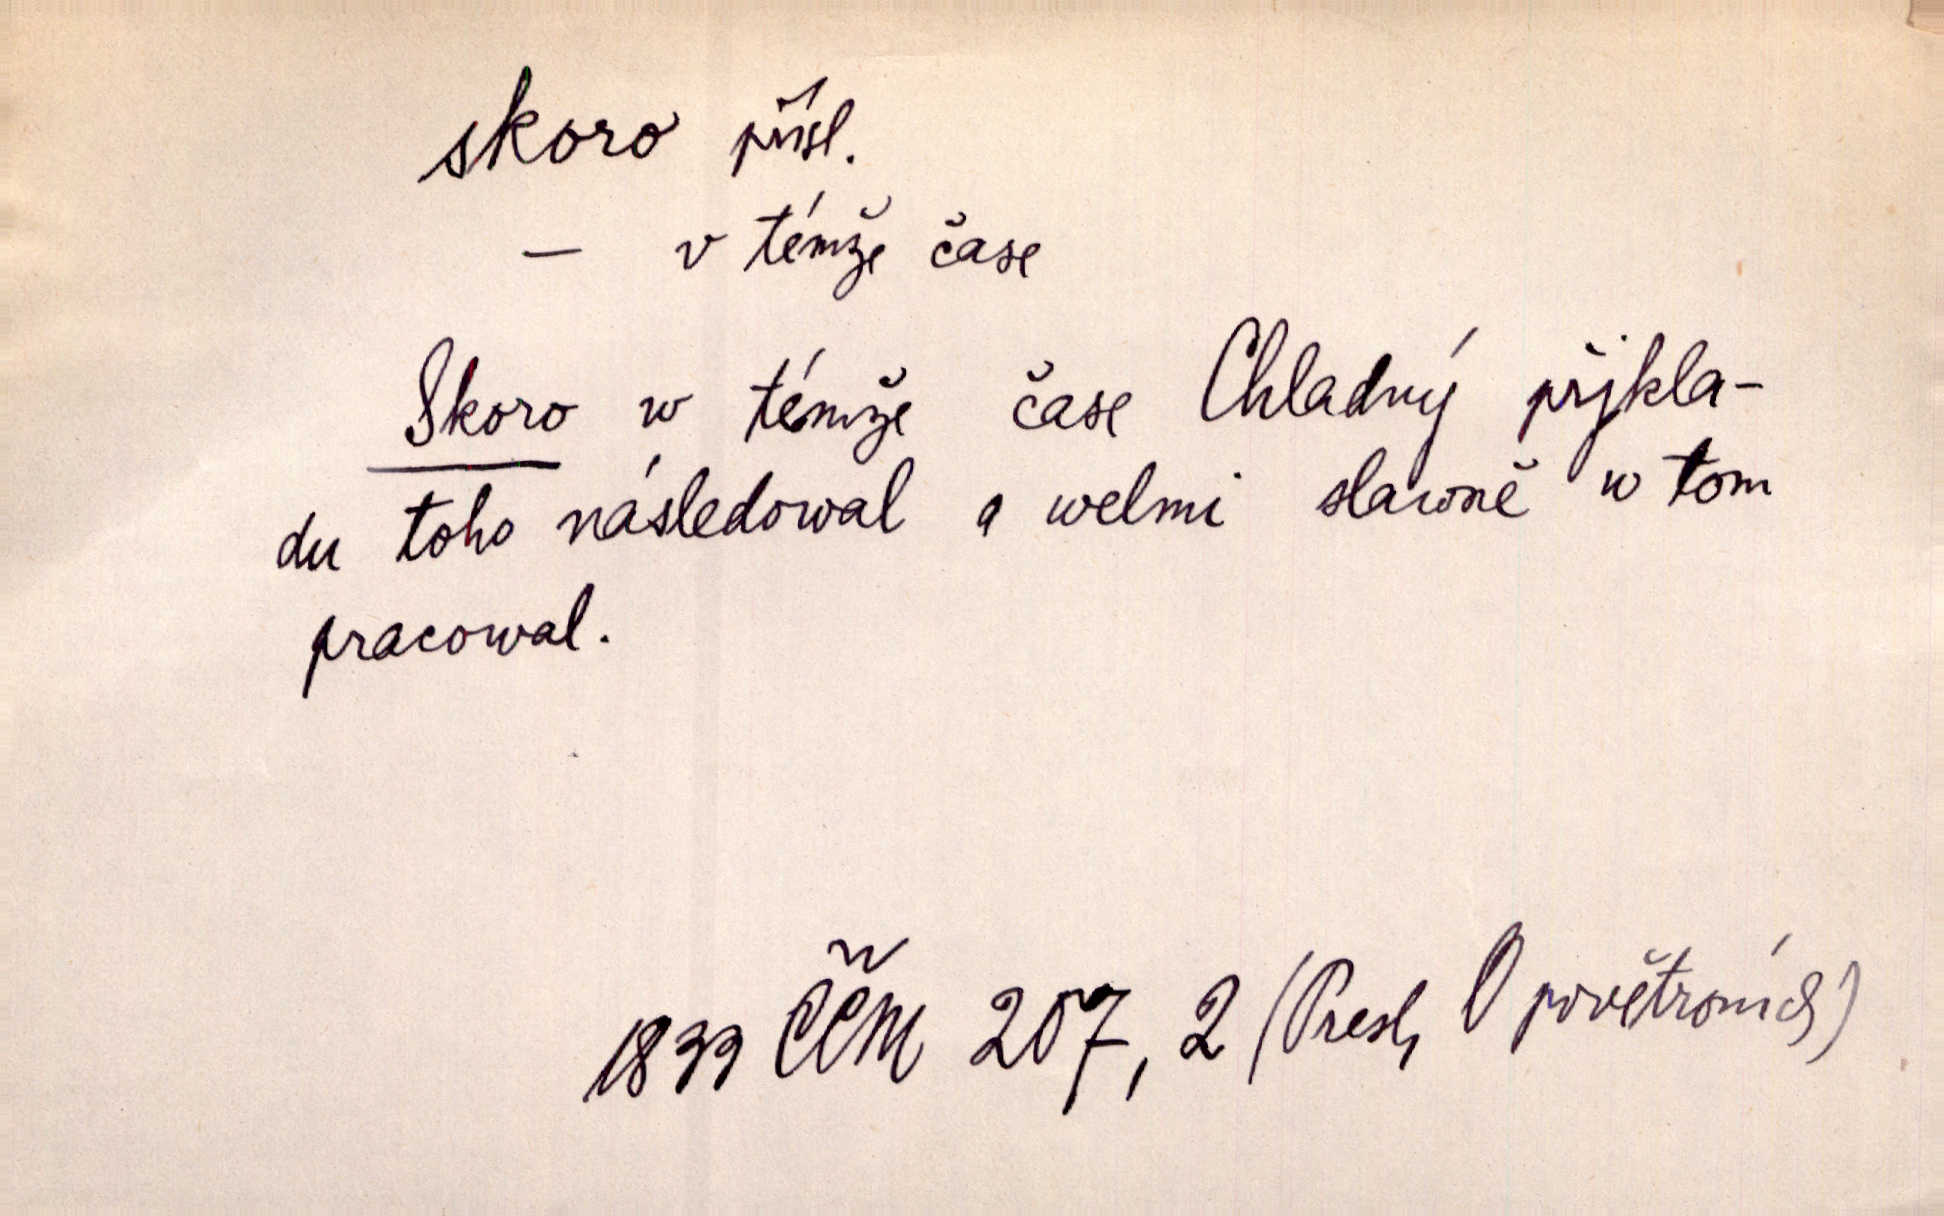 skoro přísl.
— v témže čase
Skoro w témže čase Chladný přjkla-
du toho následowal a welmi slawně w tom
pracowal.
1833 ČČM 207, 2 (Presl, O povětroních)